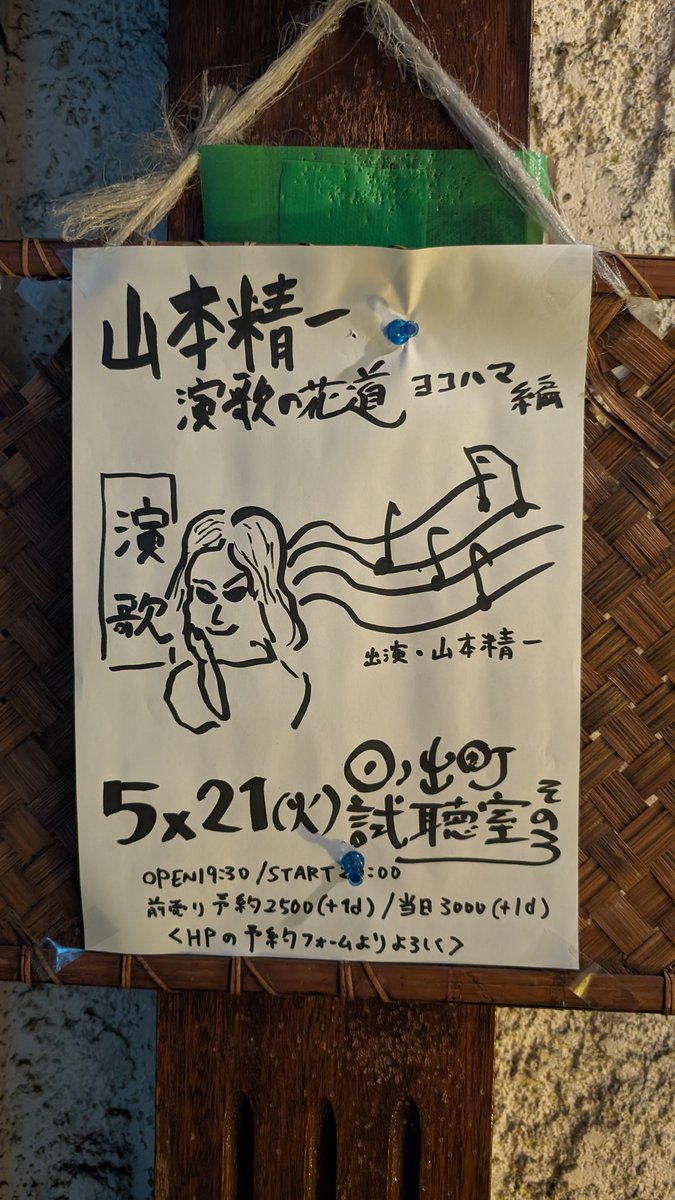 山本精一
演歌の花道 ヨコハマ編
演歌
出演・山本精一
5×21(火) 日ノ出町
試聴室その3
OPEN19:30/START2:00
前売り予約2500(+1d)/当日3000(+1d)
<HPの予約フォームよりよろしく>